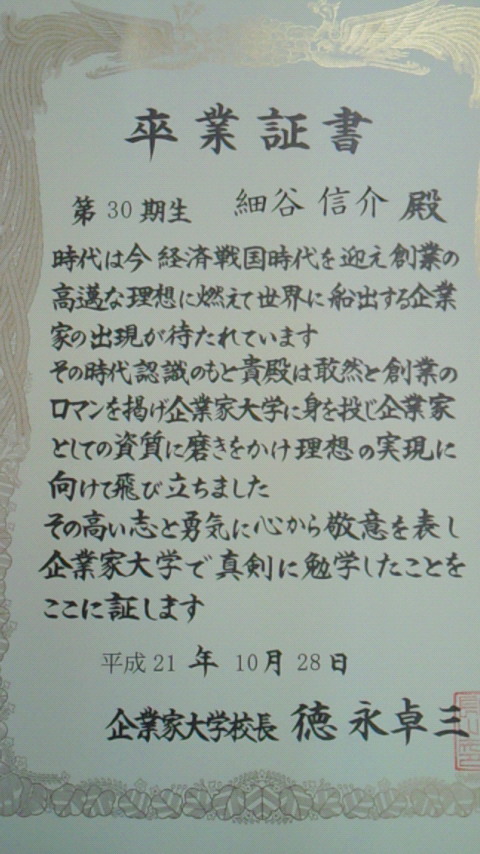 卒業証書
第30期生 細谷 信介 殿
時代は今 経済戦国時代を迎え創業の
高邁な理想に燃えて世界に船出する企業
家の出現が待たれています
その時代認識のもと貴殿は敢然と創業の
ロマンを掲げ企業家大学に身を投じ企業家
としての資質に磨きをかけ理想の実現に
向けて飛び立ちました
その高い志と勇気に心から敬意を表し
企業家大学で真剣に勉学したことを
ここに証します
平成21年10月28日
企業家大学校長 徳永卓三